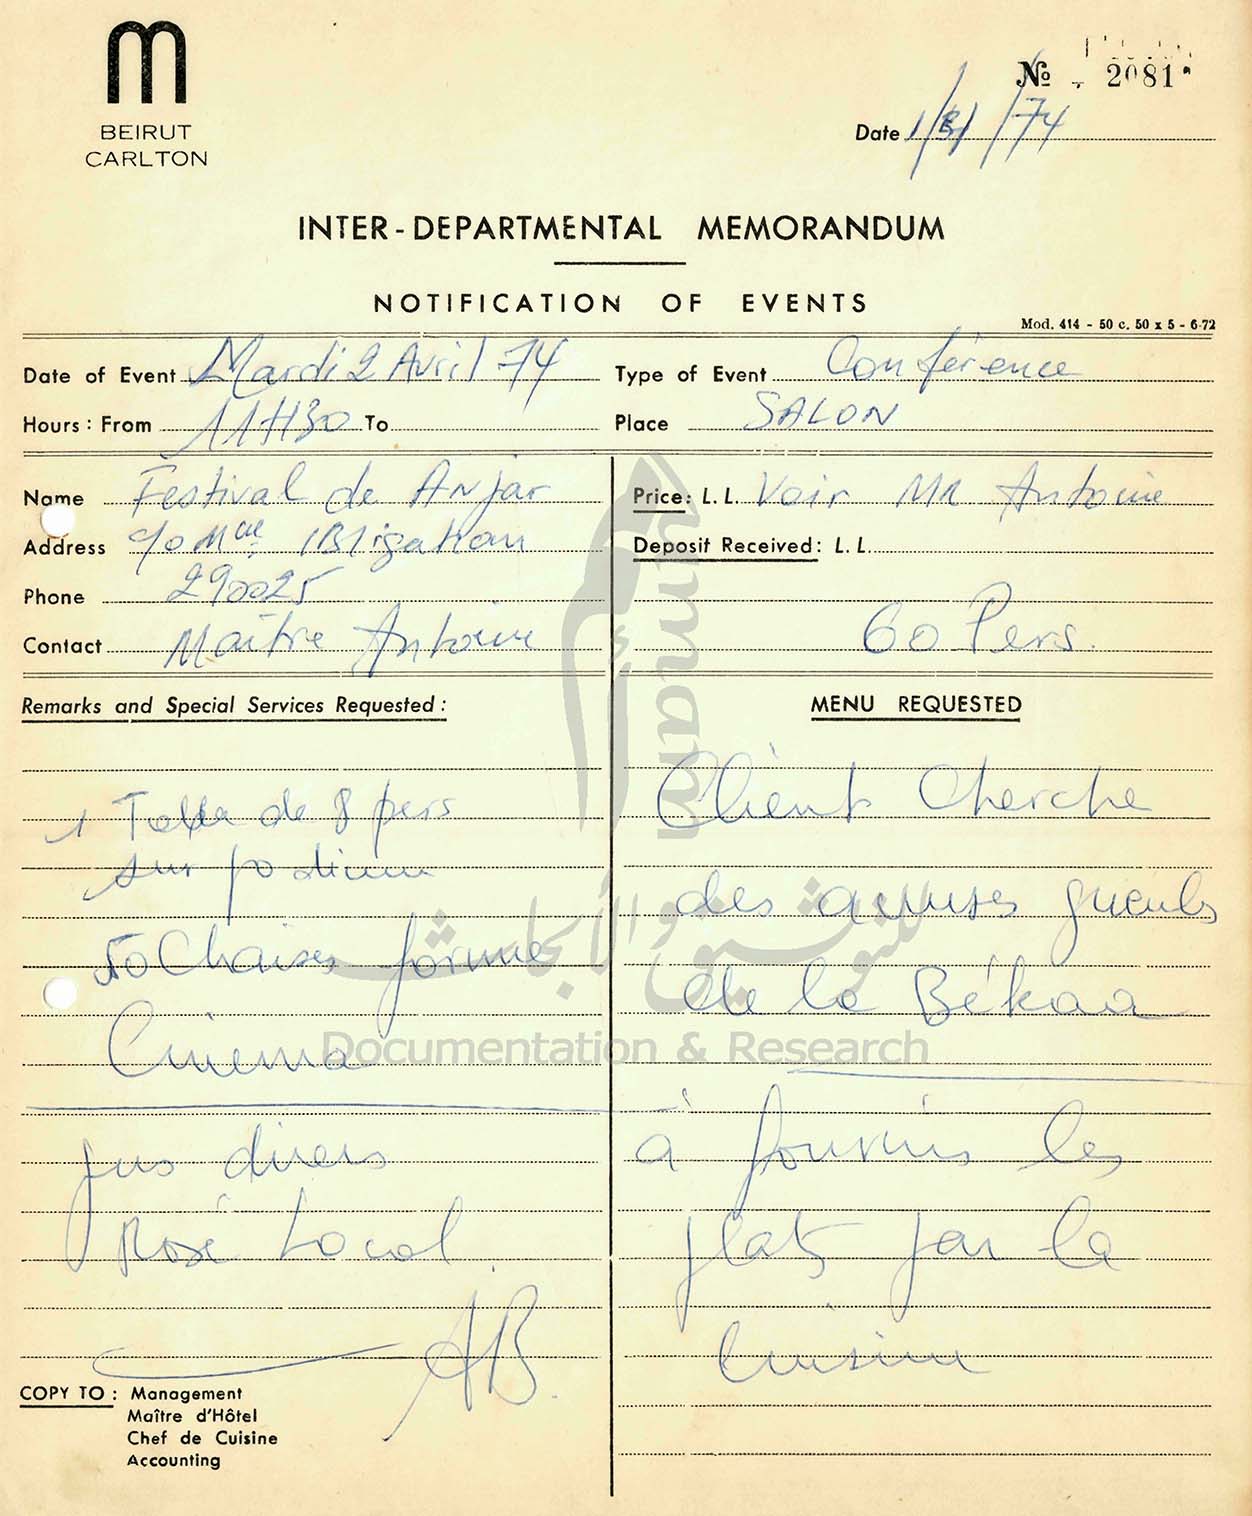 BEIRUT
CARLTON
№ 2081
Date 1/3/74
INTER-DEPARTMENTAL MEMORANDUM
NOTIFICATION OF EVENTS
Mod. 414 - 50 c. 50 x 5 - 6-72
Date of Event Mardi 2 Avril 74
Type of Event Conférence
Hours: From 11H30 To
Place SALON
Name Festival de Anjar
Address
Phone 290025
Contact Maître Antoine
Price: L.L. Voir Mr Antoine
Deposit Received: L.L.
60 Pers.
Remarks and Special Services Requested:
1 Table de 8 pers
sur podium
50 Chaises forme
Cinema
jus divers
Rosé Local
AB.
MENU REQUESTED
Client Cherche
des amuses gueuls
de la Békaa
à fournir les
plats par la
Cuisine
COPY TO: Management
Maître d'Hôtel
Chef de Cuisine
Accounting
umam
للتوثيق والأبحاث
Documentation & Research